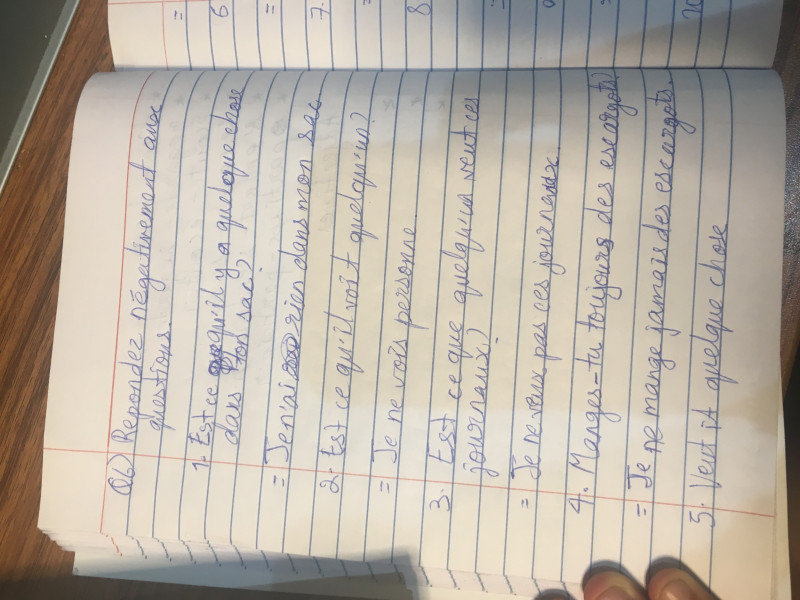 Q6) Repondez négativement avox
questions.
1. Est ce qu'il y a quelque chose
dans ton sac?
= Je n'ai rien dans mon sac
2. Est ce qu'il voit quelqu'un?
= Je ne vois personne.
3. Est ce que quelqu'un veut ces
journaux?
= Je ne veux pas ces journaux.
4. Manges-tu toujours des escargots?
= Je ne mange jamais des escargots.
5. Veut it quelque chose
=
6
=
7.
=
8
=